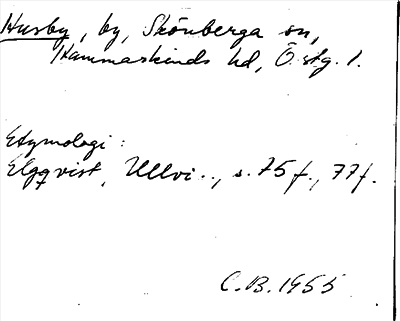 Husby, by, Skönberga sn,
Hammarkinds hd, Ö.stg. l.
Etymologi:
Elgqvist, Ullvi.., s. 75 f., 77 f.
C.B. 1955